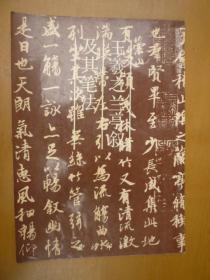 王羲之兰亭叙
及其笔法
稽山陰之蘭亭脩稧事
也羣賢畢至少長咸集此地
有崇山峻領茂林脩竹又有清流激
湍暎帶左右引以為流觴曲水
列坐其次雖無絲竹管弦之
盛一觴一詠亦足以暢叙幽情
是日也天朗氣清惠風和暢仰